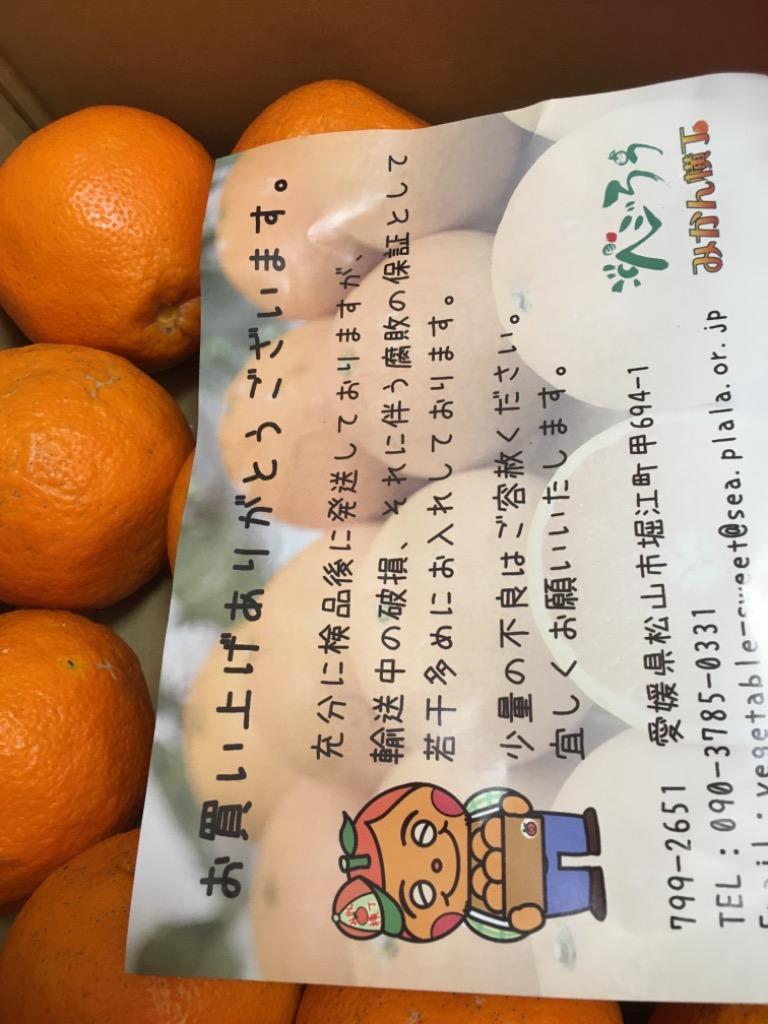 お買い上げありがとうございます。
充分に検品後に発送しておりますが、
輸送中の破損、それに伴う腐敗の保証として
若干多めにお入れしております。
少量の不良はご容赦ください。
宜しくお願いいたします。
799-2651 愛媛県松山市堀江町甲694-1
TEL：090-3785-0331
Email：vegetable-sweet@sea.plala.or.jp
みかん横丁